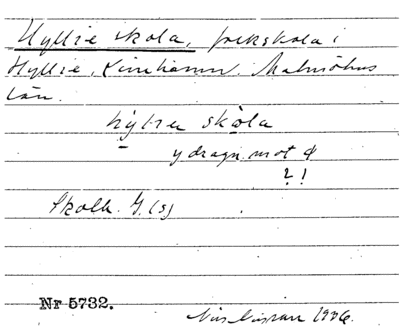 Hyllie skola, folkskola i
Hyllie, Limhamn. Malmöhus
län.
hỳlıə skò̱la
y dragn. mot ø
? !
Skolk. G. (s)
Nr 5732.
1936.